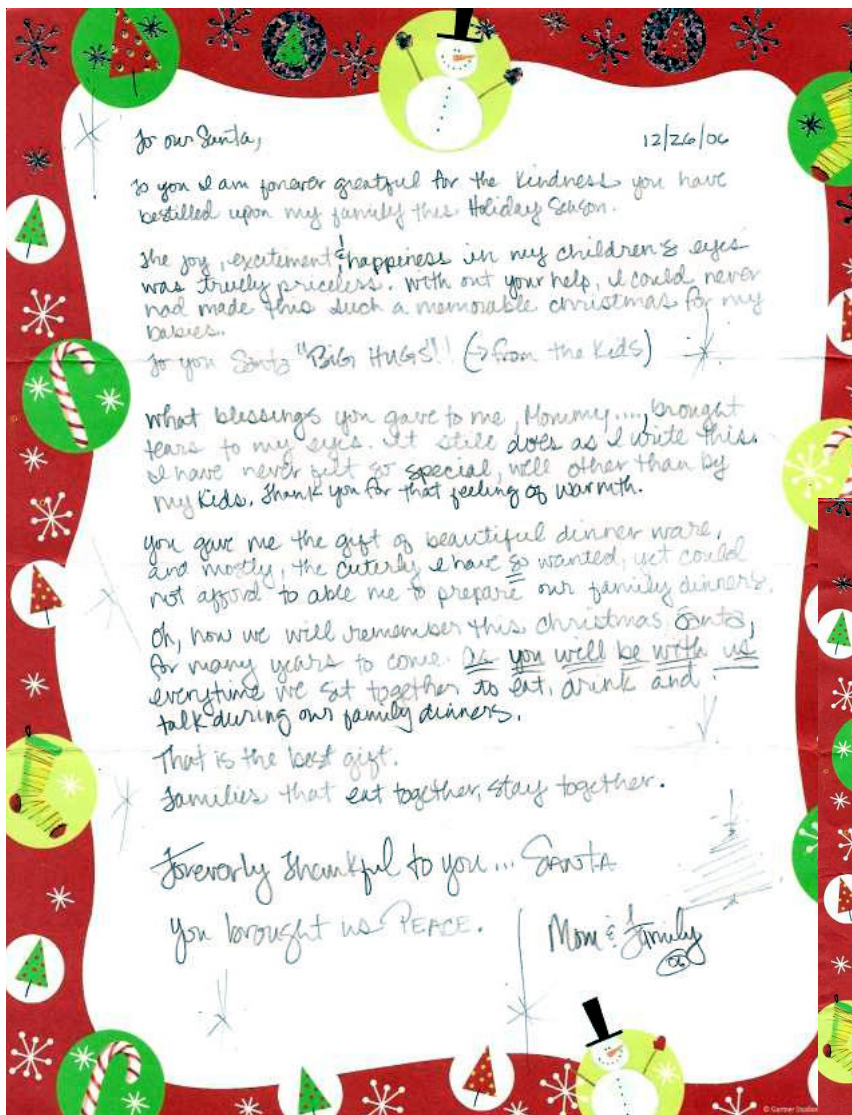 To our Santa, 12/26/06
To you I am forever greatful for the kindness you have
bestilled upon my family this Holiday Season.
The joy, excitement & happiness in my children's eyes
was truely priceless. With out your help, I could never
had made this such a memorable christmas for my
babies.
To you Santa "BIG HUGS"!! (→ from the Kids)
What blessings you gave to me, Mommy...., brought
tears to my eyes. It still does as I write this.
I have never felt so special, well other than by
my Kids. Thank you for that feeling of warmth.
You gave me the gift of beautiful dinner ware,
and mostly, the cuterly I have so wanted, yet could
not afford to able me to prepare our family dinners.
Oh, how we will remember this christmas Santa,
for many years to come. as you will be with us
everytime we sat together to eat, drink and
talk during our family dinners.
That is the best gift.
Families that eat together, stay together.
Foreverly Thankful to you... SANTA
You brought us PEACE. Mom & Family
06
© Gartner Studios